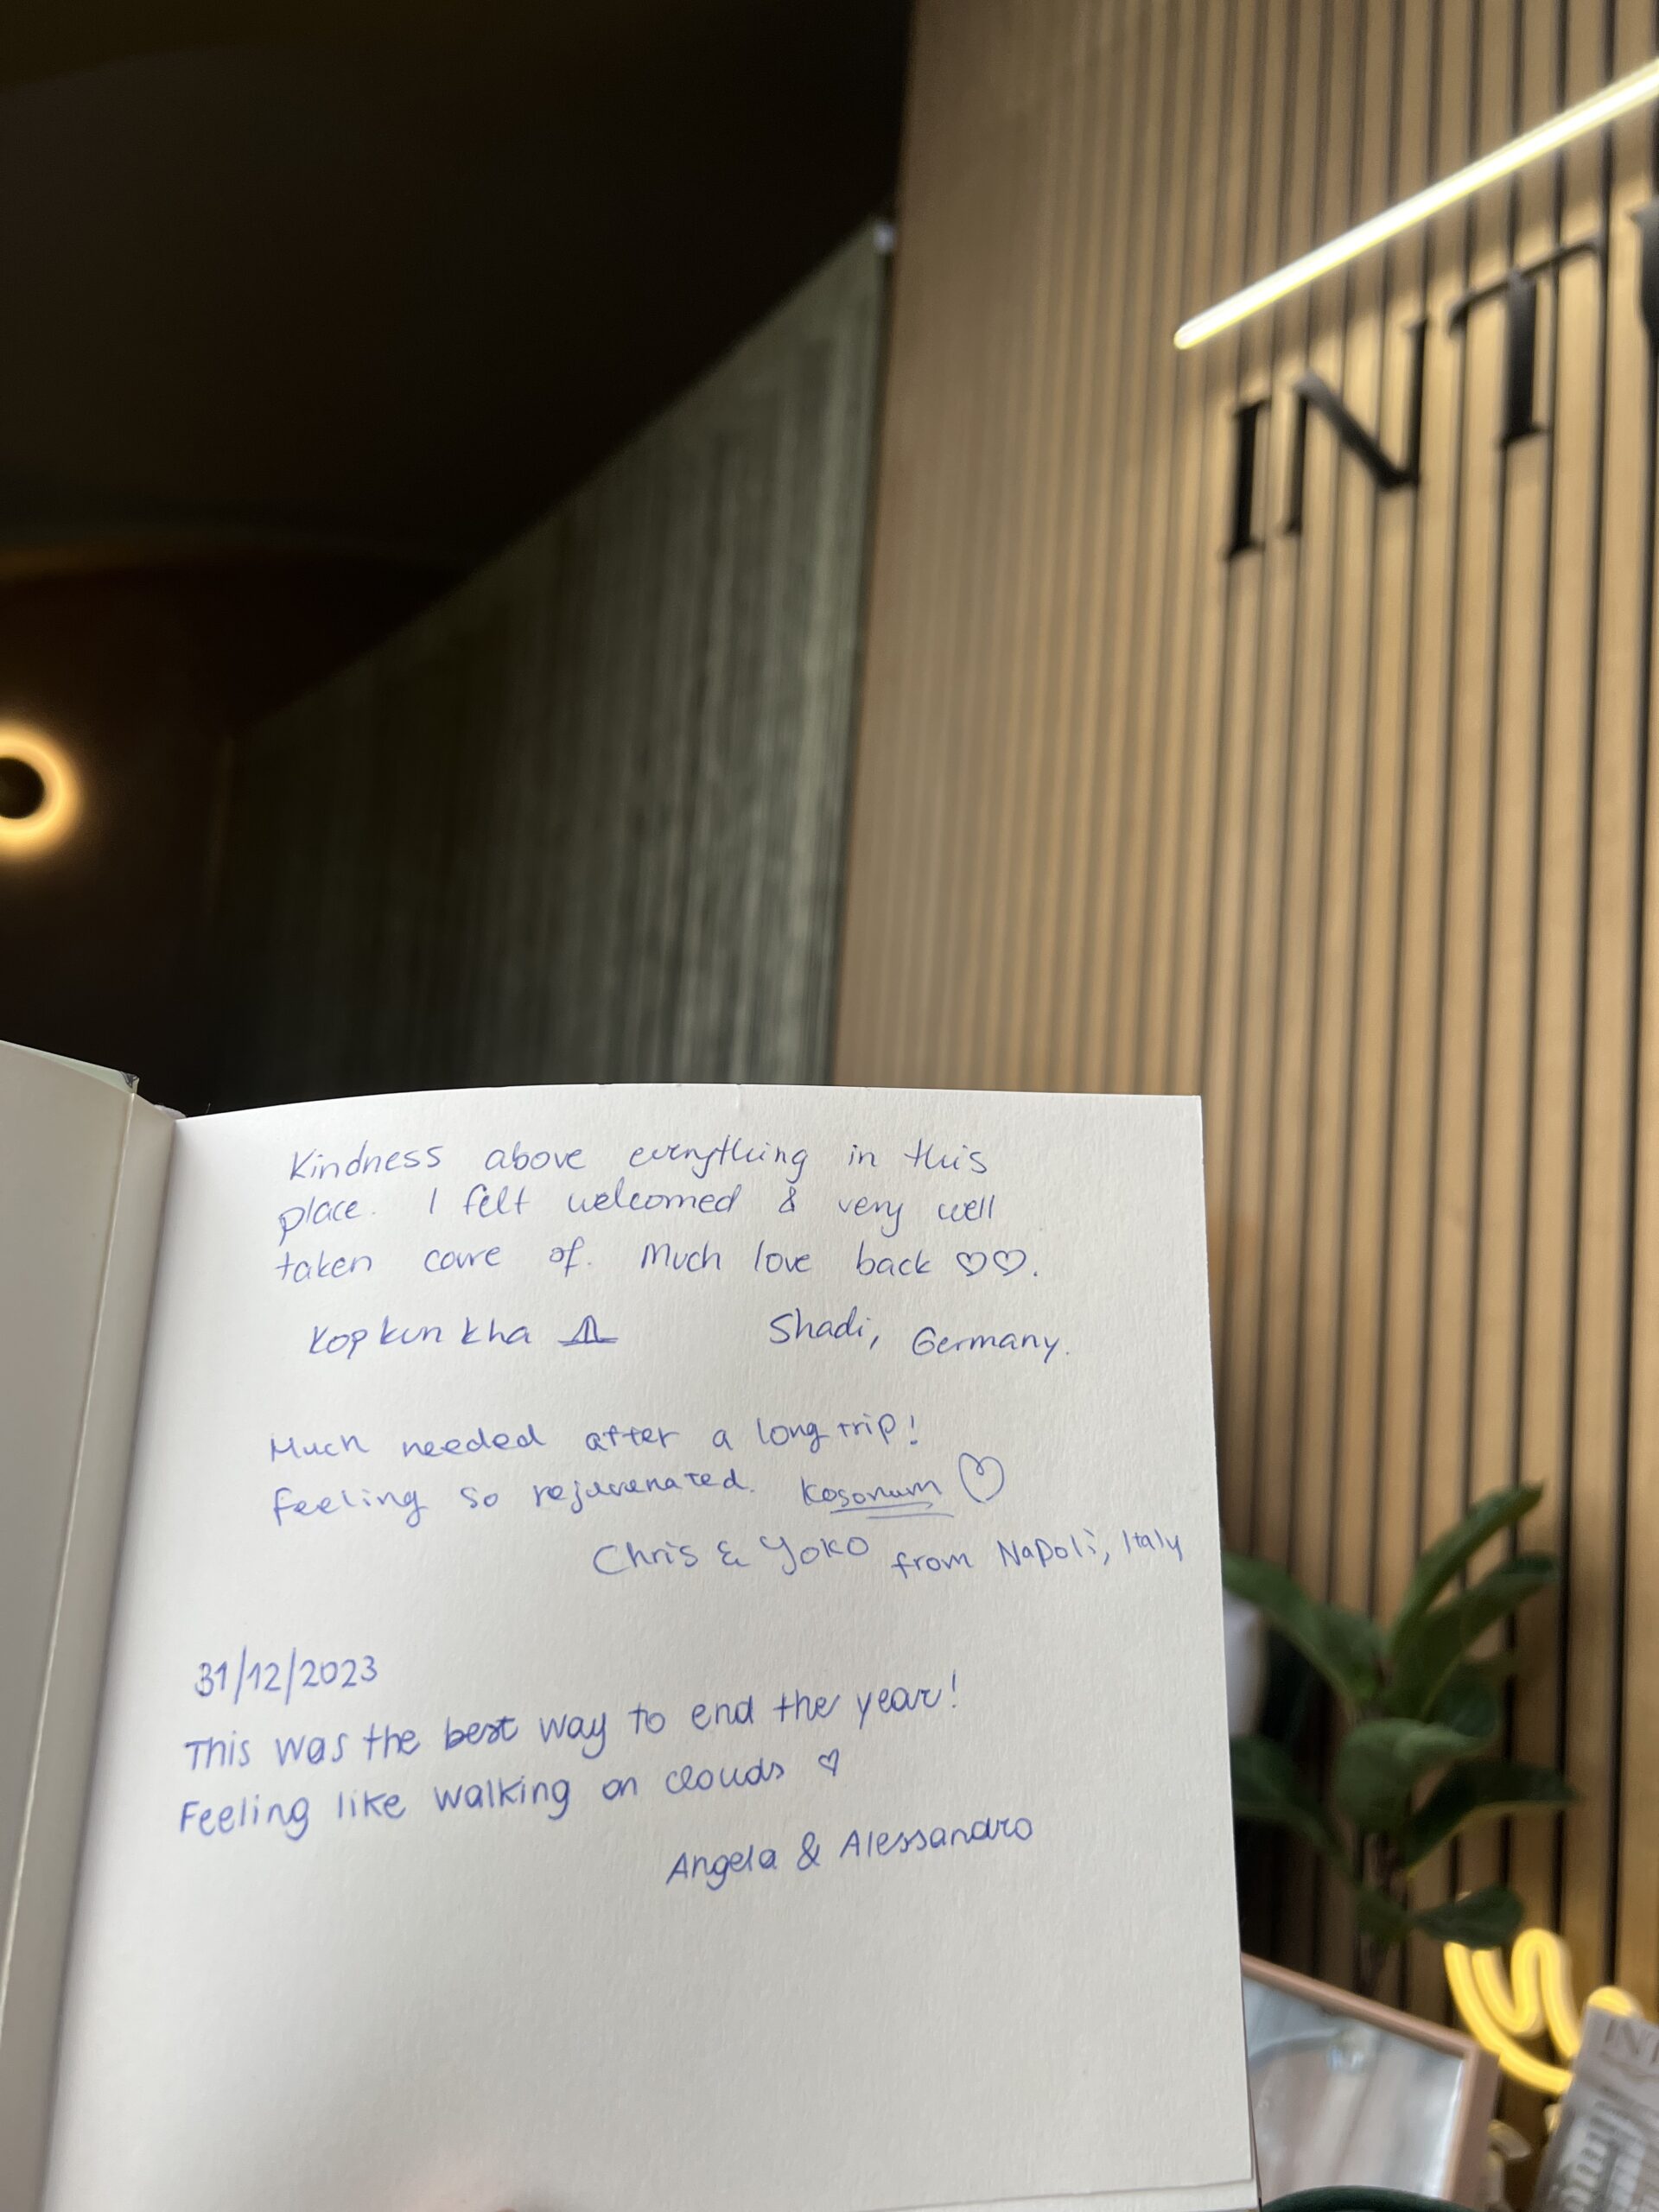 INT
Kindness above everything in this
place. I felt welcomed & very well
taken care of. Much love back ♡♡.
Kop kun kha
Shadi, Germany.
Much needed after a long trip!
Feeling so rejuvenated. Kosonum ♡
Chris & Yoko from Napoli, Italy
31/12/2023
This was the best way to end the year!
Feeling like walking on clouds ♡
Angela & Alessandro